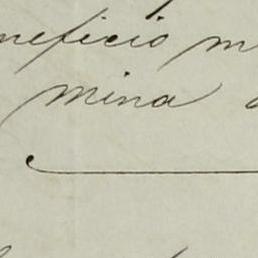 neficio m
mina